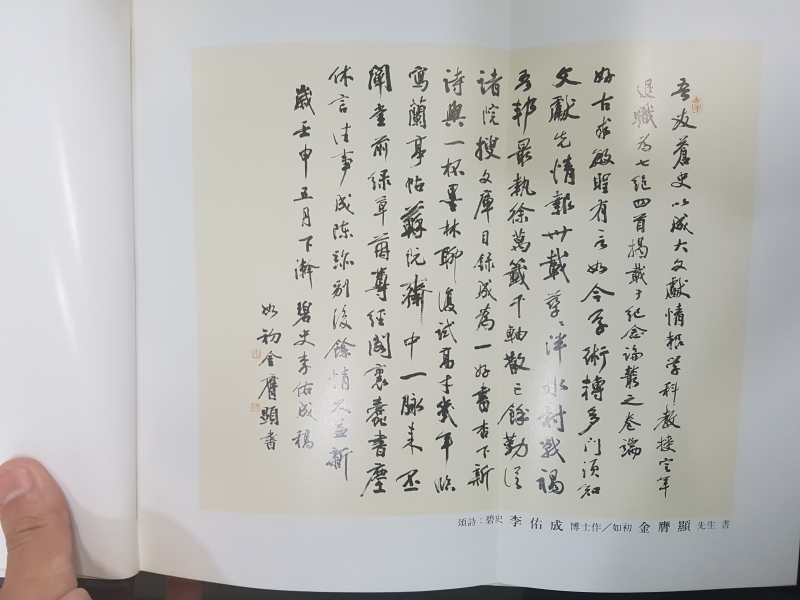 吾友蒼史以成大文獻情報學科教授定年
退職爲七絶四首揭載于紀念論叢之卷端
好古求敏聖有言如今學術轉多門須知
文獻先情報卅載莘〻泮水村戰禍
吾邦最執徐萬籤千軸散亡餘勤從
諸院搜文庫目錄成爲一好書杏下新
詩與一杯墨林聊復試高才幾年臨
寫蘭亭帖蘇阮齋中一脈來丕
闡堂前綠草茵尊經閣裏蠹書塵
休言往事成陳跡別後餘情久益新
歲壬申五月下澣 碧史李佑成稿
如初金膺顯書
頌詩：碧史 李佑成 博士作／如初 金膺顯 先生 書